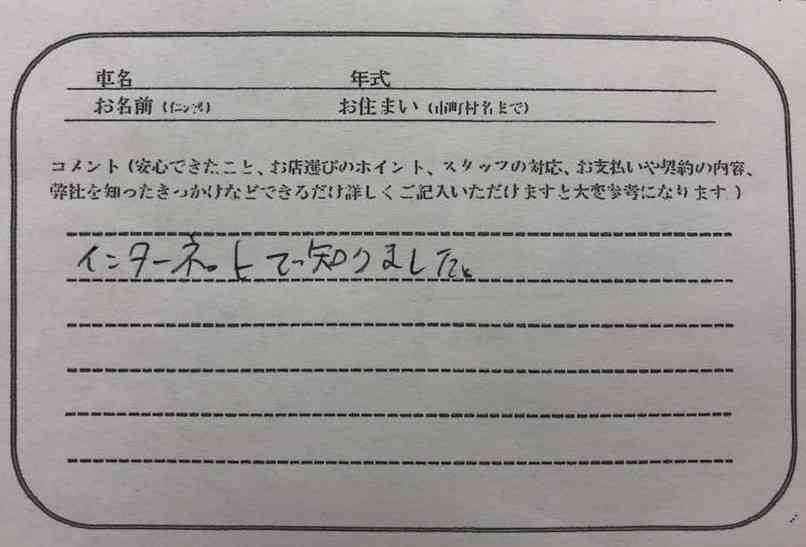 車名 年式
お名前(イニシャル) お住まい(市町村名まで)
コメント(安心できたこと、お店選びのポイント、スタッフの対応、お支払いや契約の内容、
弊社を知ったきっかけなどできるだけ詳しくご記入いただけますと大変参考になります)
インターネットで知りました。